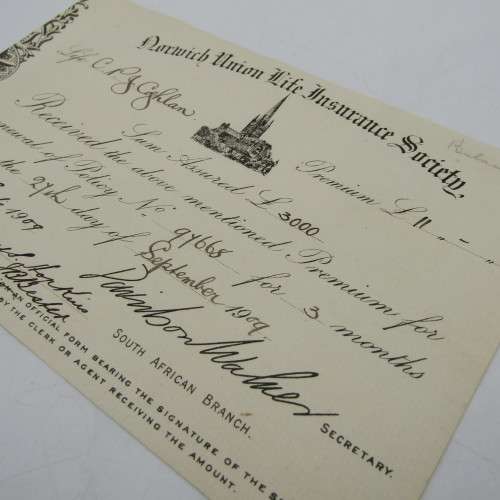 Norwich Union Life Insurance Society
Life C.P.J. Coghlan
Sum Assured £ 3000 Premium £ 11 " – "
Received the above mentioned Premium for
Renewal of Policy No 97668 for 3 months
the 27th day of September 1909
1909
Davidson Walker
SECRETARY.
SOUTH AFRICAN BRANCH.
AN OFFICIAL FORM BEARING THE SIGNATURE OF THE
BY THE CLERK OR AGENT RECEIVING THE AMOUNT.